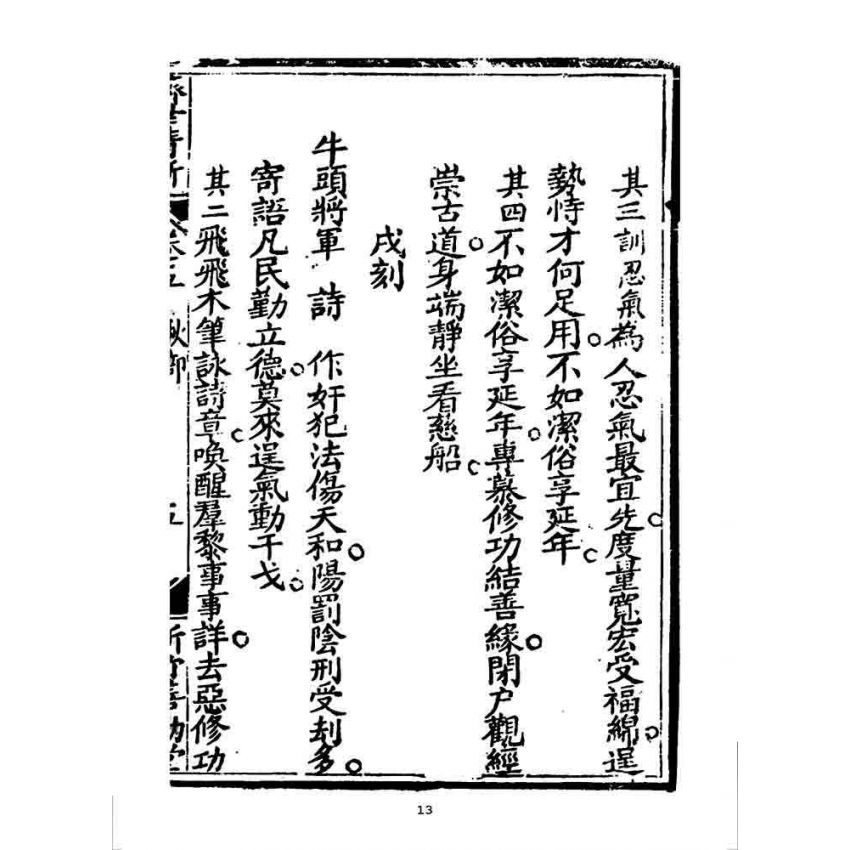 其三訓忍氣為人忍氣最宜先。度量寬宏受福綿。逞
勢恃才何足用。不如潔俗享延年。
其四不如潔俗享延年。專慕修功結善緣。閉户觀經
崇古道。身端靜坐看慈船。
戌刻
牛頭將軍 詩 作奸犯法傷天和。陽罰陰刑受刦多。
寄語凡民勤立德。莫來逞氣動干戈。
其二飛飛木筆詠詩章。喚醒羣黎事事詳。去惡修功
卷五 秋部 五
13